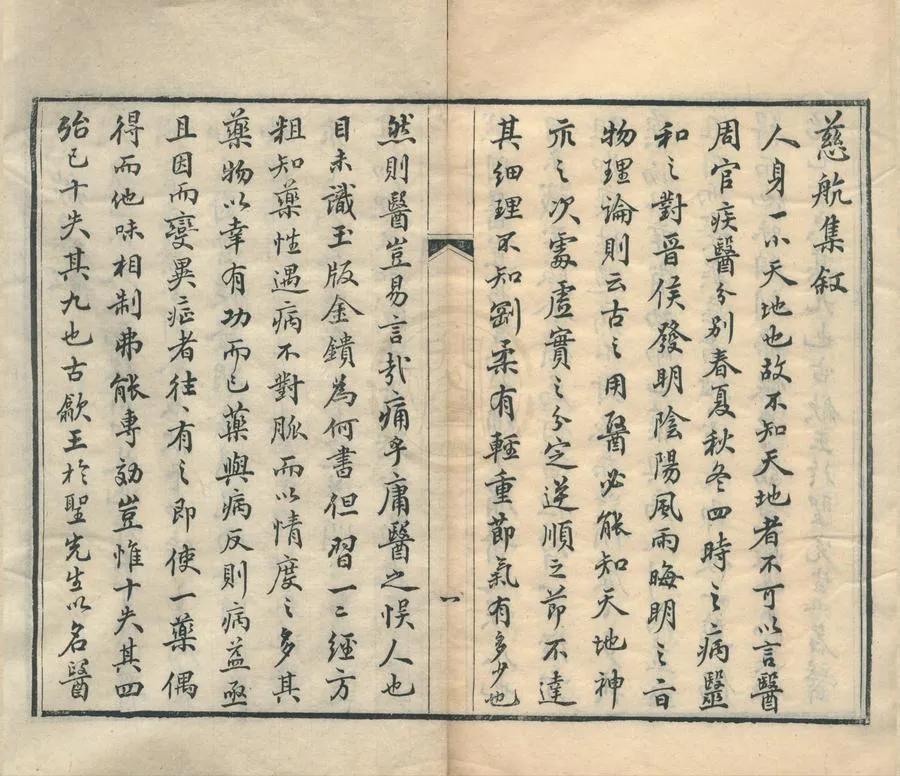 慈航集叙
人身一小天地也故不知天地者不可以言醫
周官疾醫分别春夏秋冬四時之病醫
和之對晋侯發明陰陽風雨晦明之旨
物理論則云古之用醫必能知天地神
示之次處虛實之分定逆順之節不達
其細理不知劑柔有輕重節氣有多少也
一
然則醫豈易言哉痛乎庸醫之悮人也
目未識玉版金鐀為何書但習一二經方
粗知藥性遇病不對脈而以情度之多其
藥物以幸有功而已藥與病反則病益亟
且因而變異症者往往有之即使一藥偶
得而他味相制弗能專効豈惟十失其四
殆已十失其九也古歙王於聖先生以名醫